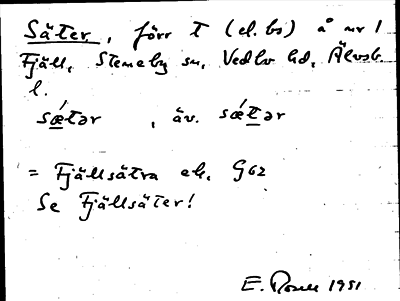 Säter, förr t (el. bs) å nr 1
Fjäll, Steneby sn, Vedbo hd, Älvsb.
l.
sǽtər , äv. sǽtər
= Fjällsätra ek. G62
Se Fjällsäter!
E. 1951